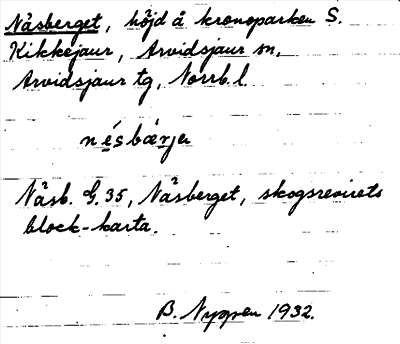 Näsberget, höjd å kronoparken S.
Kikkejaur, Arvidsjaur sn,
Arvidsjaur tg, Norrb. l.
nésbærjə
Näsb. G. 35, Näsberget, skogsrevirets
block-karta.
B. Nygren 1932.